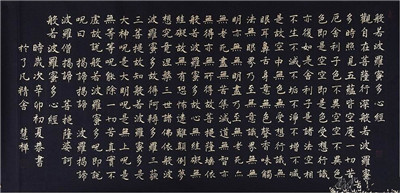 般若波羅蜜多心經
觀自在菩薩行深般若波羅蜜
多時照見五蘊皆空度一切苦
厄舍利子色不異空空不異色
色即是空空即是色受想行識
亦復如是舍利子是諸法空相
不生不滅不垢不淨不增不減
是故空中無色無受想行識無
眼耳鼻舌身意無色聲香味觸
法無眼界乃至無意識界無無
明亦無無明盡乃至無老死亦
無老死盡無苦集滅道無智亦
無得以無所得故菩提薩埵依
般若波羅蜜多故心無罣礙無
罣礙故無有恐怖遠離顛倒夢
想究竟涅槃三世諸佛依般若
波羅蜜多故得阿耨多羅三藐
三菩提故知般若波羅蜜多是
大神咒是大明咒是無上咒是
無等等咒能除一切苦真實不
虛故說般若波羅蜜多咒即說
咒曰 揭諦揭諦 波羅揭諦
波羅僧揭諦 菩提薩婆訶
般若波羅蜜多心經
時歲次辛卯初夏恭書
竹了凡精舍